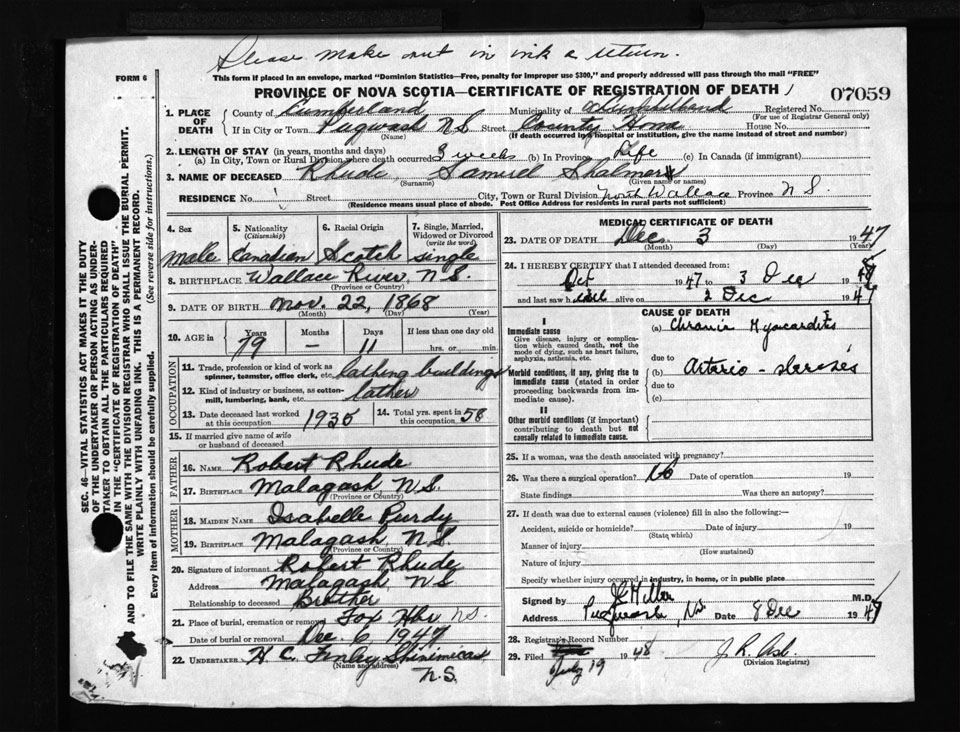 Please make out in ink & return.
FORM 6
This form if placed in an envelope, marked "Dominion Statistics—Free, penalty for improper use $300," and properly addressed will pass through the mail "FREE"
PROVINCE OF NOVA SCOTIA—CERTIFICATE OF REGISTRATION OF DEATH
07059
1. PLACE OF DEATH
County of Cumberland Municipality of Registered No.
(For use of Registrar General only)
If in City or Town Pugwash N S Street County Home House No.
(Name) (If death occurred in a hospital or institution, give the name instead of street and number)
2. LENGTH OF STAY (in years, months and days)
(a) In City, Town or Rural Division where death occurred 3 weeks (b) In Province Life (c) In Canada (if immigrant)
3. NAME OF DECEASED Rhude, Samuel Chalmers
(Surname) (Given name or names)
RESIDENCE No. Street City, Town or Rural Division North Wallace Province N S.
(Residence means usual place of abode. Post Office Address for residents in rural parts not sufficient)
4. Sex 5. Nationality (Citizenship) 6. Racial Origin 7. Single, Married, Widowed or Divorced (write the word)
Male Canadian Scotch single
8. BIRTHPLACE Wallace River, N.S.
(Province or Country)
9. DATE OF BIRTH Nov. 22, 1868
(Month) (Day) (Year)
10. AGE in Years Months Days If less than one day old
79 — 11 hrs. or min.
OCCUPATION
11. Trade, profession or kind of work as spinner, teamster, office clerk, etc. lathing buildings
12. Kind of industry or business, as cotton-mill, lumbering, bank, etc. lather
13. Date deceased last worked at this occupation 1935 14. Total yrs. spent in this occupation 58
15. If married give name of wife or husband of deceased
FATHER
16. NAME Robert Rhude
17. BIRTHPLACE Malagash N.S.
(Province or Country)
MOTHER
18. MAIDEN NAME Isabelle Purdy
19. BIRTHPLACE Malagash, N.S.
(Province or Country)
20. Signature of informant Robert Rhude
Address Malagash, N S
Relationship to deceased Brother
21. Place of burial, cremation or removal Fox Hbr N.S.
Date of burial or removal Dec. 6, 1947
22. UNDERTAKER H. C. Finley Shinimicas
(Name and address)
N.S.
MEDICAL CERTIFICATE OF DEATH
23. DATE OF DEATH Dec 3 1947
(Month) (Day) (Year)
24. I HEREBY CERTIFY that I attended deceased from:
Oct 1947 to 3 Dec 194
and last saw h alive on 2 Dec 194
CAUSE OF DEATH
I
Immediate cause
Give disease, injury or complication which caused death, not the mode of dying, such as heart failure, asphyxia, asthenia, etc.
(a) Chronic Myocarditis
due to
Morbid conditions, if any, giving rise to immediate cause (stated in order proceeding backwards from immediate cause).
(b) Arterio-
due to
(c)
II
Other morbid conditions (if important) contributing to death but not causally related to immediate cause.
25. If a woman, was the death associated with pregnancy?
26. Was there a surgical operation? No Date of operation 19
State findings Was there an autopsy?
27. If death was due to external causes (violence) fill in also the following:—
Accident, suicide or homicide? Date of injury 19
(State which)
Manner of injury
(How sustained)
Nature of injury
Specify whether injury occurred in industry, in home, or in public place
Signed by Miller M.D.
Address Pugwash, N.S. Date 8 Dec 1947
28. Registrar's Record Number
29. Filed July 19 1948
(Division Registrar)
SEC. 46—VITAL STATISTICS ACT MAKES IT THE DUTY
OF THE UNDERTAKER OR PERSON ACTING AS UNDER-
TAKER TO OBTAIN ALL THE PARTICULARS REQUIRED
IN THE "CERTIFICATE OF REGISTRATION OF DEATH"
AND TO FILE THE SAME WITH THE DIVISION REGISTRAR WHO SHALL ISSUE THE BURIAL PERMIT.
WRITE PLAINLY WITH UNFADING INK. THIS IS A PERMANENT RECORD.
Every item of information should be carefully supplied. (See reverse side for instructions.)